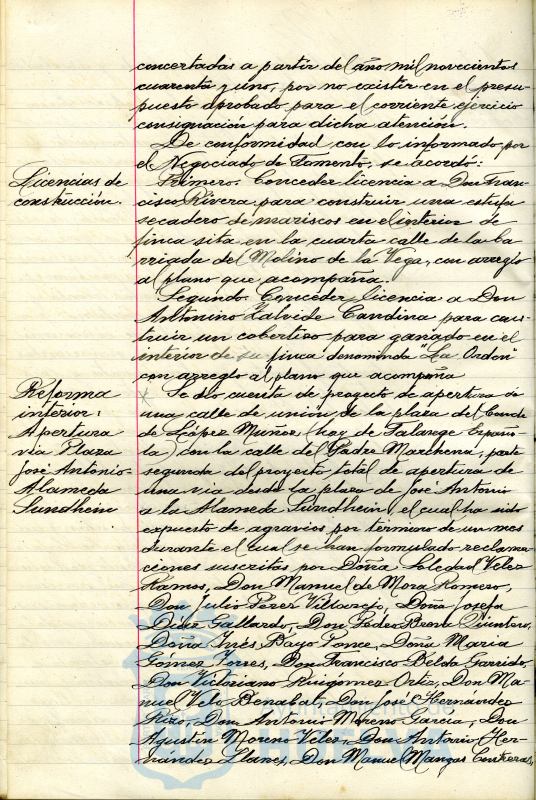 concertadas a partir del año mil novecientos
cuarenta y uno, por no existir en el presu-
puesto aprobado para el corriente ejercicio
consignación para dicha atención.
De conformidad con lo informado por
el Negociado de Fomento, se acordó:
Licencias de
construcción.
Primero: Conceder licencia a Don Fran-
cisco Rivera para construir una estufa
secadero de mariscos en el interior de
finca sita en la cuarta calle de la ba-
rriada del Molino de la Vega, con arreglo
al plano que acompaña.
Segundo: Conceder licencia a Don
Antonino Zalvide Candina para cons-
truir un cobertizo para ganado en el
interior de su finca denominada "La Orden"
con arreglo al plano que acompaña
Reforma
interior:
Apertura
via Plaza
José Antonio-
Alameda
Sundhein
Se dio cuenta de proyecto de apertura de
una calle de union de la plaza del Conde
de López Muñoz, (hoy de Falange Españo-
la) con la calle del Padre Marchena, parte
segunda del proyecto total de apertura de
una via desde la plaza de José Antonio
a la Alameda Sundhein, el cual ha sido
expuesto de agravios por término de un mes
durante el cual se han formulado reclama-
ciones suscritas por Doña Soledad Velez
Ramos, Don Manuel de Mora Romero,
Don Julio Perez Villarejo, Doña Josefa
Diaz Gallardo, Don Pedro Quintero,
Doña Inés Bayo Ponce, Doña Maria
Gómez Torres, Don Francisco Belda Garrido,
Don Victoriano Ruigómez Ortiz, Don Ma-
nuel Velo Don José Hernandez
Rizo, Don Antonio Moreno Garcia, Don
Agustín Moreno Velez, Don Antonio Her-
nandez Llanes, Don Manuel Mangas Contreras,
Ayuntamiento de
HUELVA